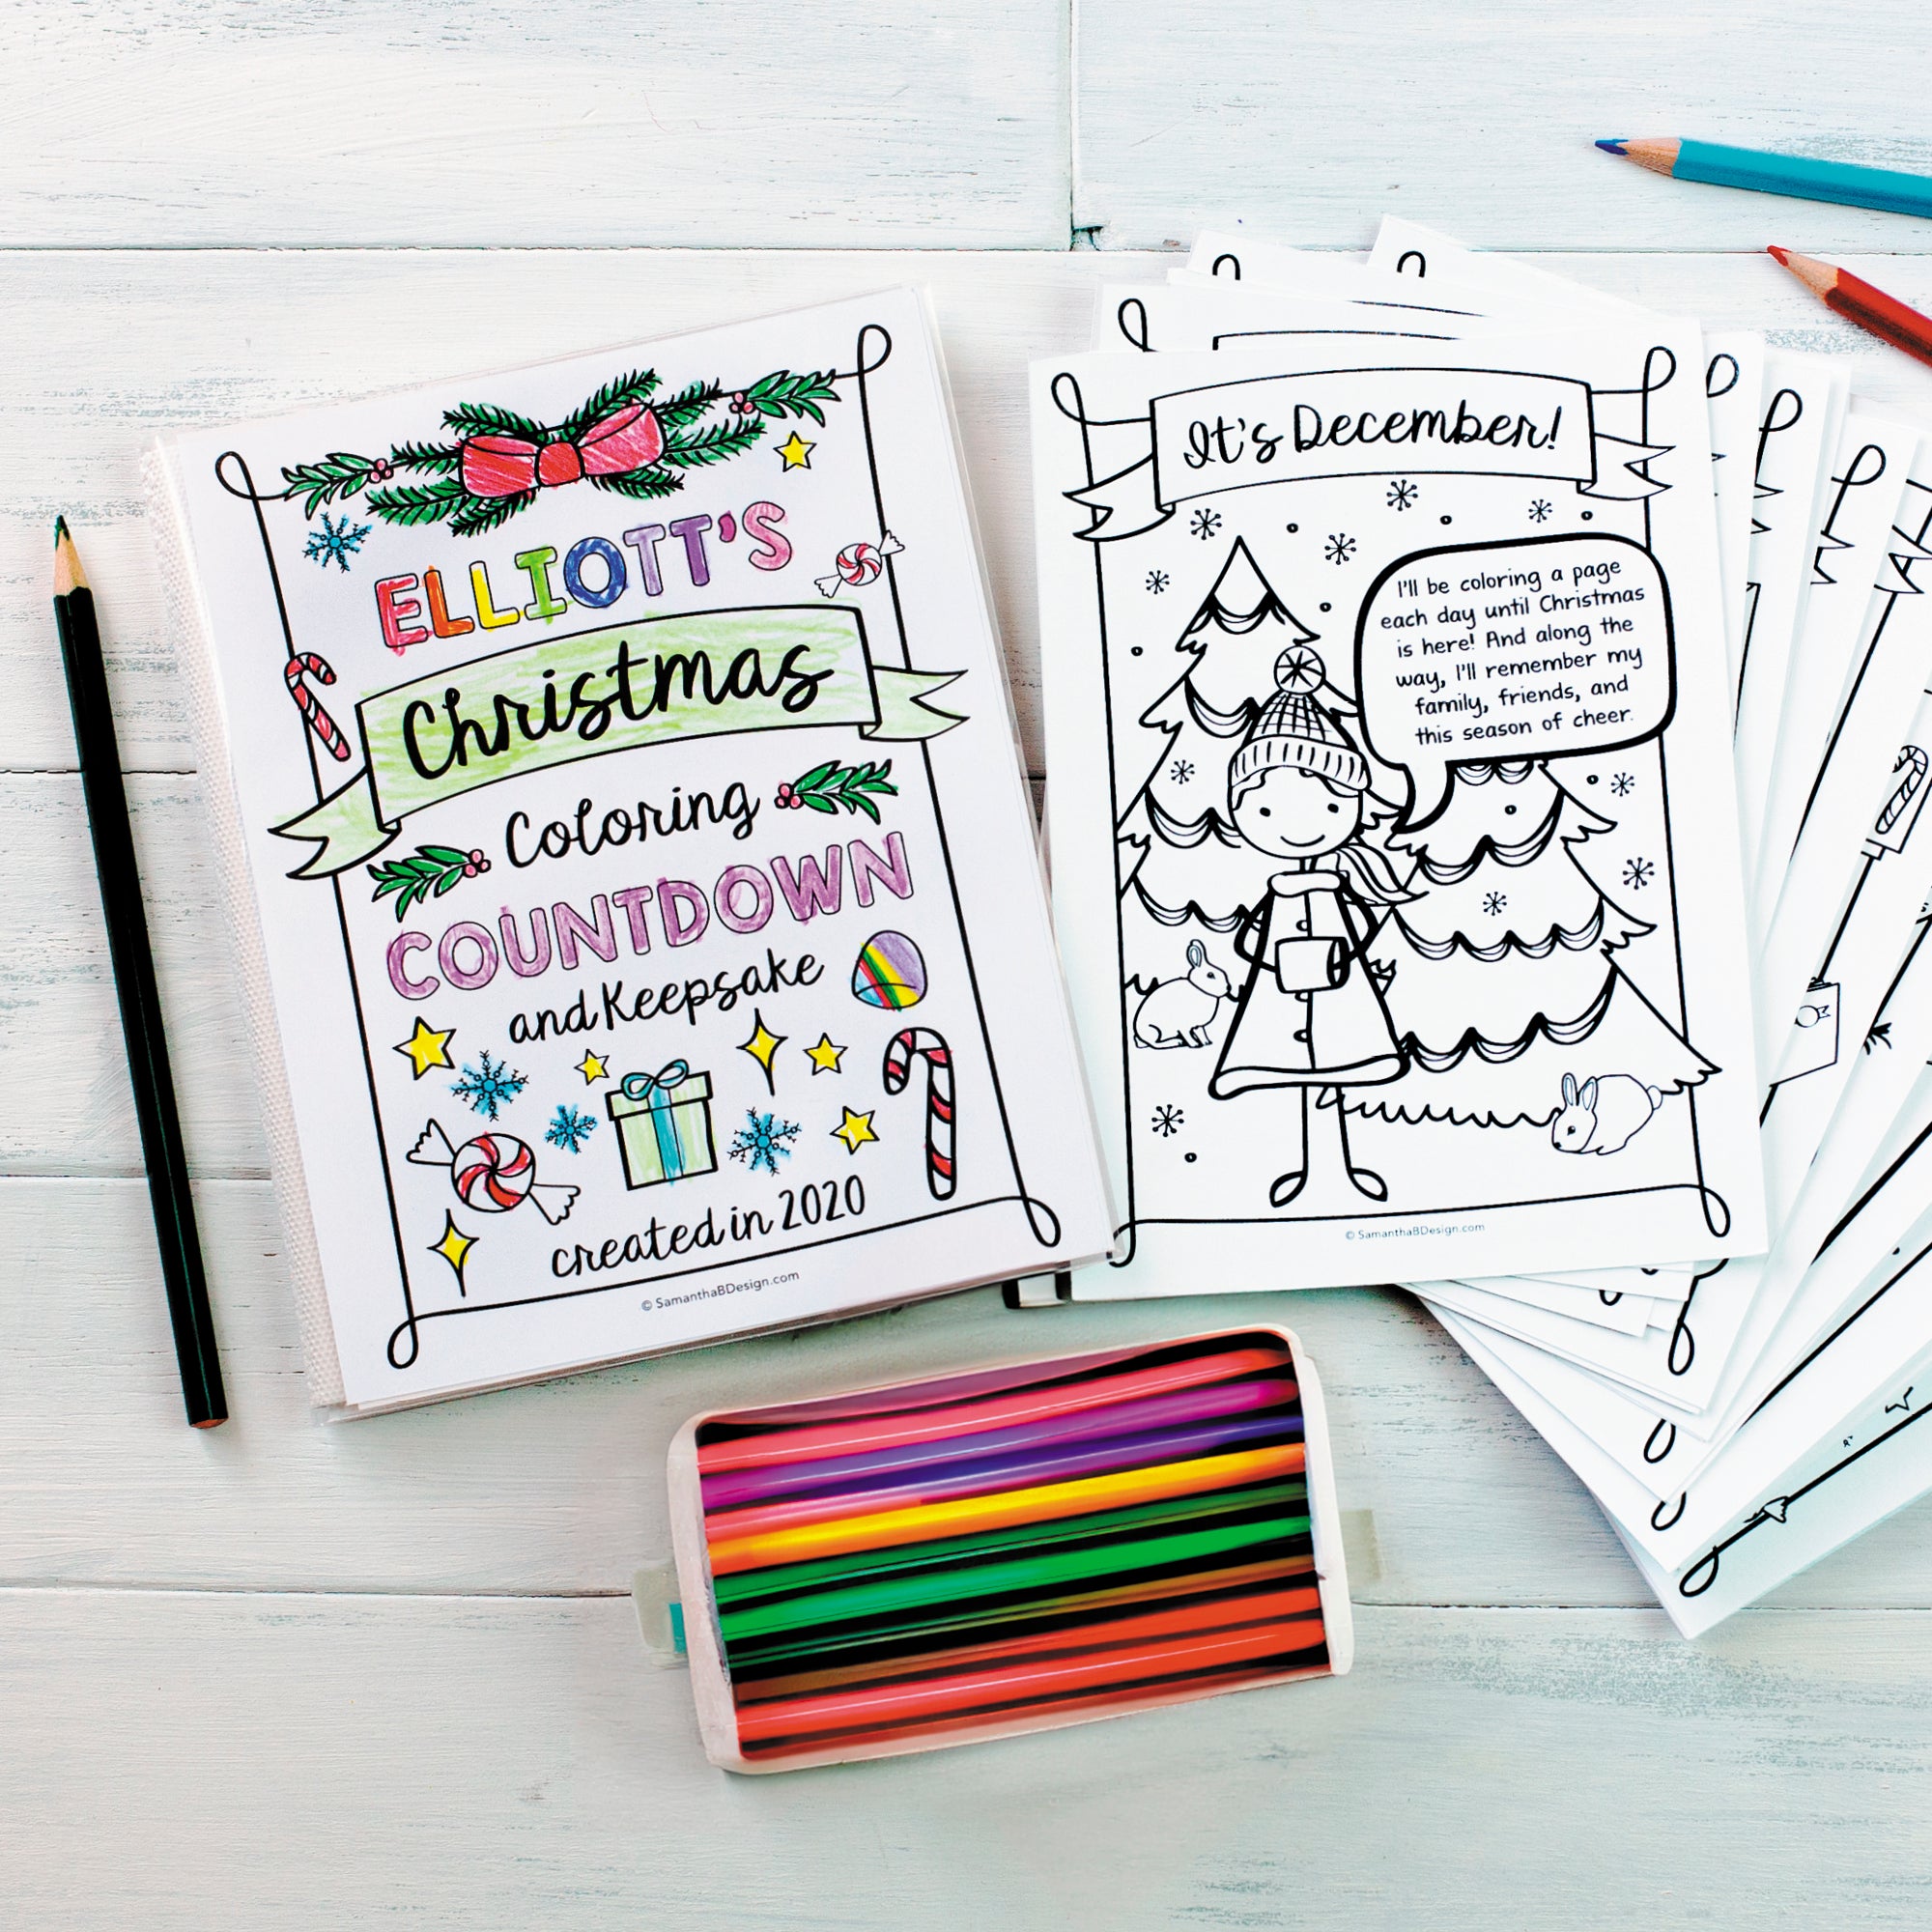 ELLIOTT'S
Christmas
Coloring
COUNTDOWN
and Keepsake
created in 2020
© SamanthaBDesign.com
It's December!
I'll be coloring a page
each day until Christmas
is here! And along the
way, I'll remember my
family, friends, and
this season of cheer.
© SamanthaBDesign.com